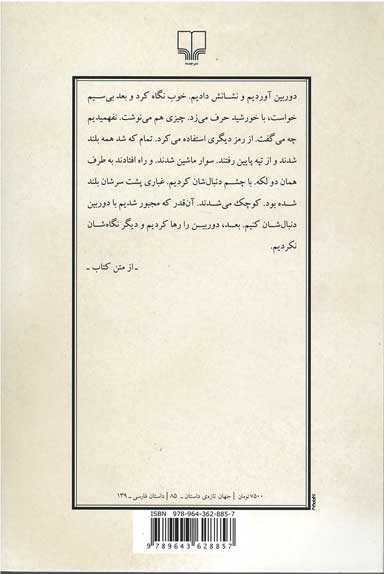 نشرچشمه
دوربین آوردیم و نشانش دادیم. خوب نگاه کرد و بعد بی‌سیم
خواست، با خورشید حرف می‌زد. چیزی هم می‌نوشت. نفهمیدیم
چه می‌گفت. از رمز دیگری استفاده می‌کرد. تمام که شد همه بلند
شدند و از تپه پایین رفتند. سوار ماشین شدند. و راه افتادند به طرف
همان دو لکه. با چشم دنبال‌شان کردیم. غباری پشت سرشان بلند
شده بود. کوچک می‌شدند. آن‌قدر که مجبور شدیم با دوربین
دنبال‌شان کنیم. بعد، دوربین را رها کردیم و دیگر نگاه‌شان
نکردیم.
ـ از متن کتاب ـ
۷۵۰۰ تومان | جهان تازه‌ی داستان ـ ۸۵ | داستان فارسی ـ ۱۳۹
ISBN 978-964-362-885-7
9 789643 628857